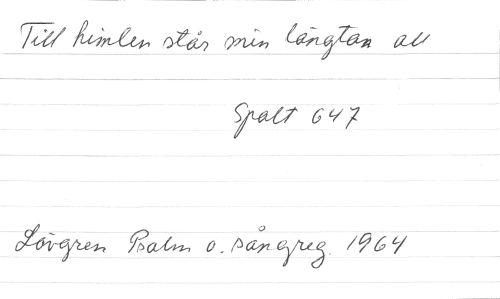 Till himlen står min längtan all
Spalt 647
Lövgren Psalm o. sångreg. 1964